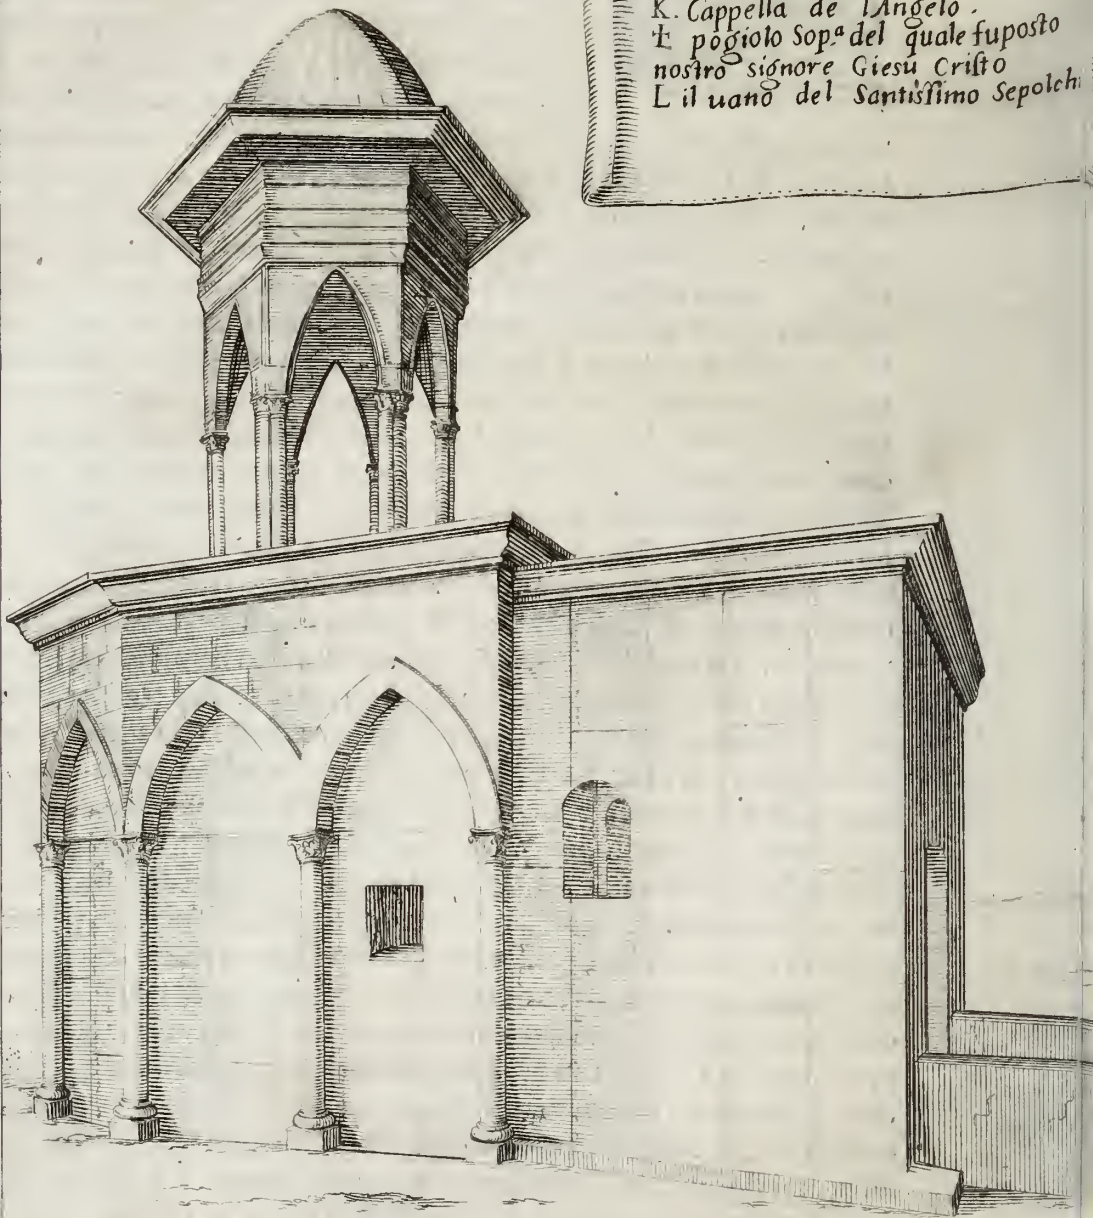 K. Cappella de l'Angelo.
Ł pogiolo Sop.ª del quale fuposto
nostro signore Giesù Criſto
L il uano del Santiſſimo Sepolch